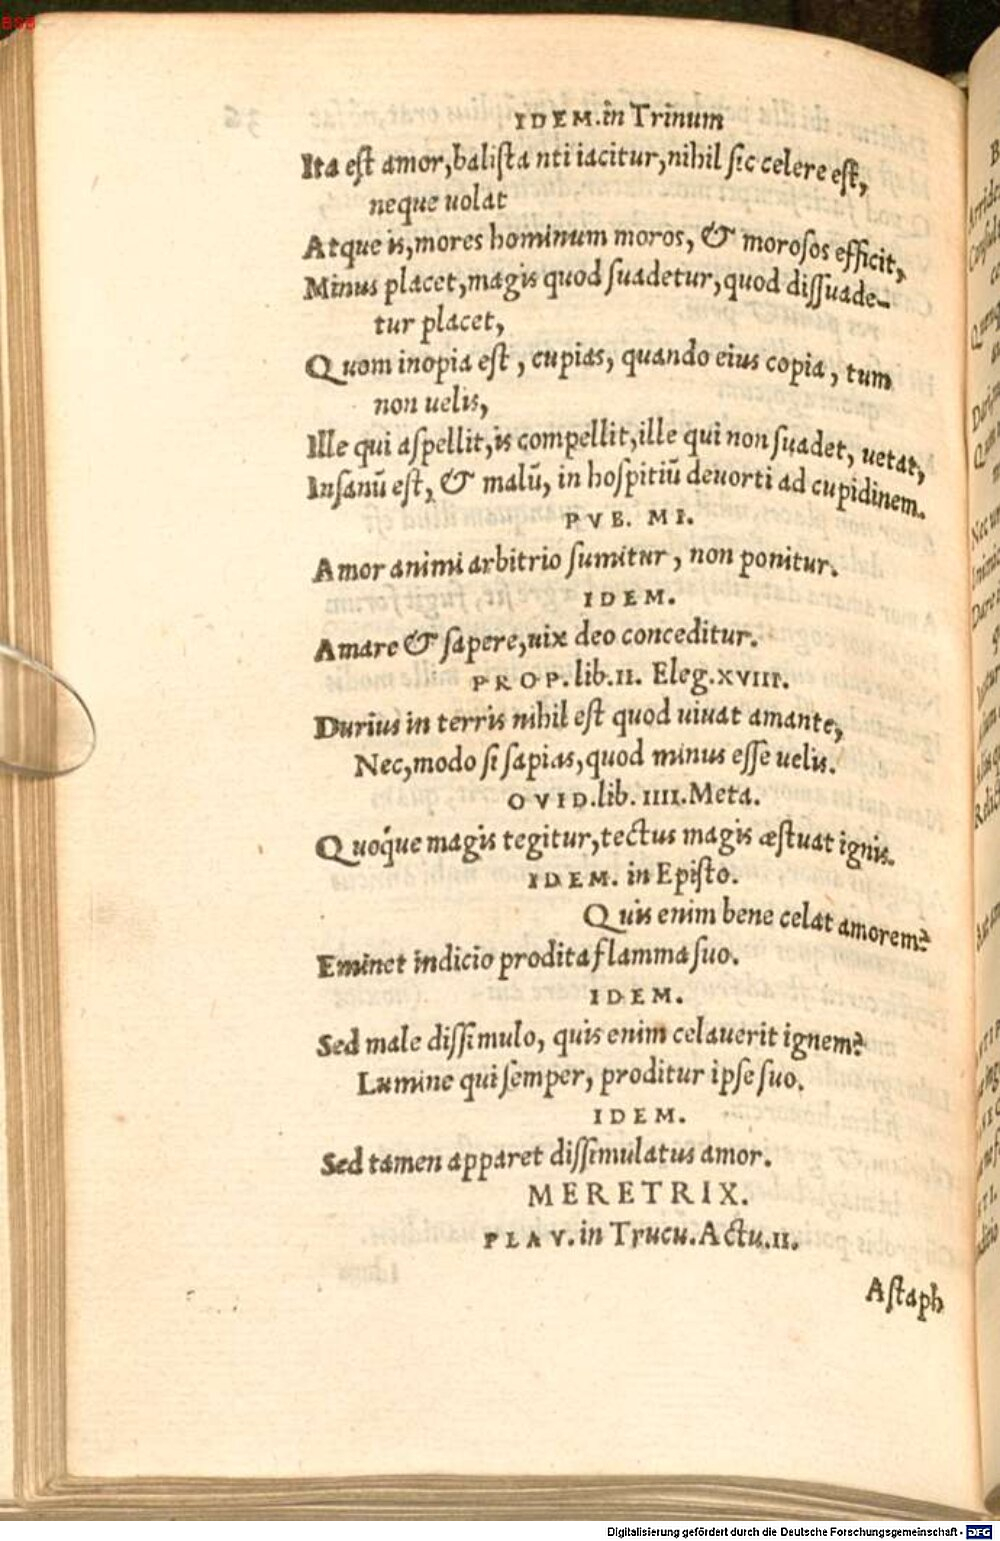 IDEM. in Trinum
Ita est amor, balista uti iacitur, nihil sic celere est,
neque uolat
Atque is, mores hominum moros, & morosos efficit,
Minus placet, magis quod suadetur, quod dissuade-
tur placet,
Quom inopia est, cupias, quando eius copia, tum
non uelis,
Ille qui aspellit, is compellit, ille qui non suadet, uetat,
Insanū est, & malū, in hospitiū deuorti ad cupidinem.
PVB. MI.
Amor animi arbitrio sumitur, non ponitur.
IDEM.
Amare & sapere, uix deo conceditur.
PROP. lib. II. Eleg. XVIII.
Durius in terris nihil est quod uiuat amante,
Nec, modo si sapias, quod minus esse uelis.
OVID. lib. IIII. Meta.
Quóque magis tegitur, tectus magis æstuat ignis.
IDEM. in Episto.
Quis enim bene celat amorem?
Eminet indicio prodita flamma suo.
IDEM.
Sed male dissimulo, quis enim celauerit ignem?
Lumine qui semper, proditur ipse suo.
IDEM.
Sed tamen apparet dissimulatus amor.
MERETRIX.
PLAV. in Trucu. Actu. II.
Astaph
Digitalisierung gefördert durch die Deutsche Forschungsgemeinschaft - DFG